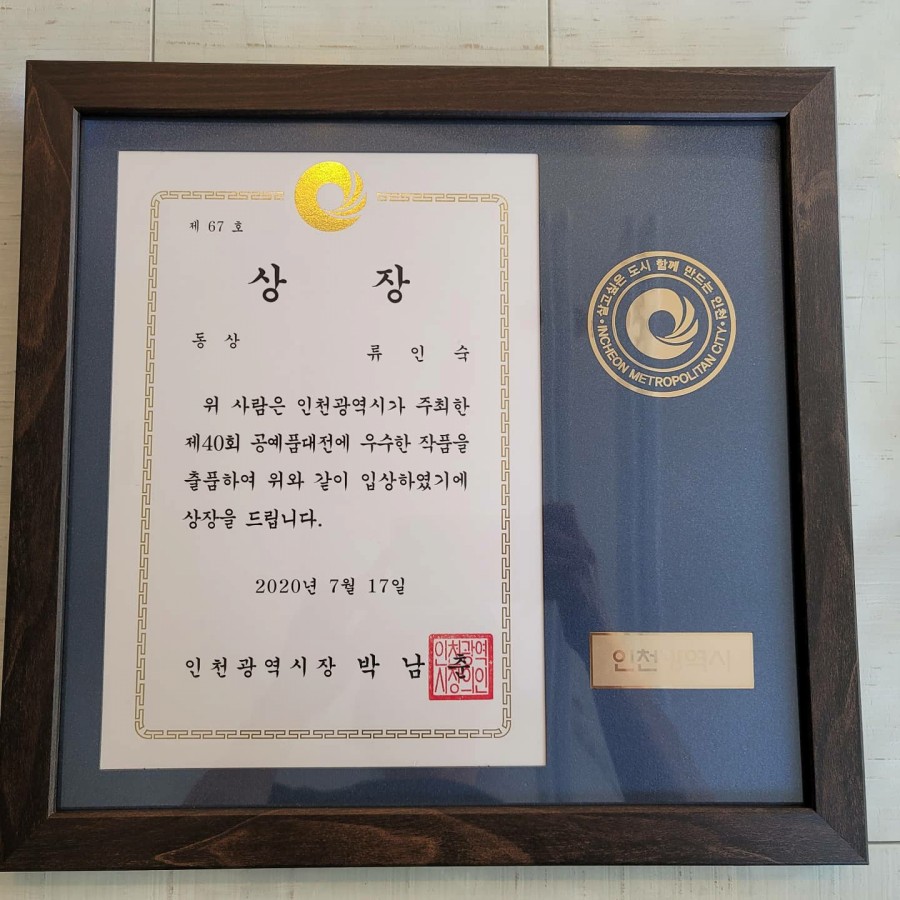 제 67 호
상 장
동 상
류 인 숙
위 사람은 인천광역시가 주최한
제40회 공예품대전에 우수한 작품을
출품하여 위와 같이 입상하였기에
상장을 드립니다.
2020년 7월 17일
인천광역시장 박 남 춘
인천광역
시장의인
·살고싶은 도시 함께 만드는 인천·
INCHEON METROPOLITAN CITY
인천광역시